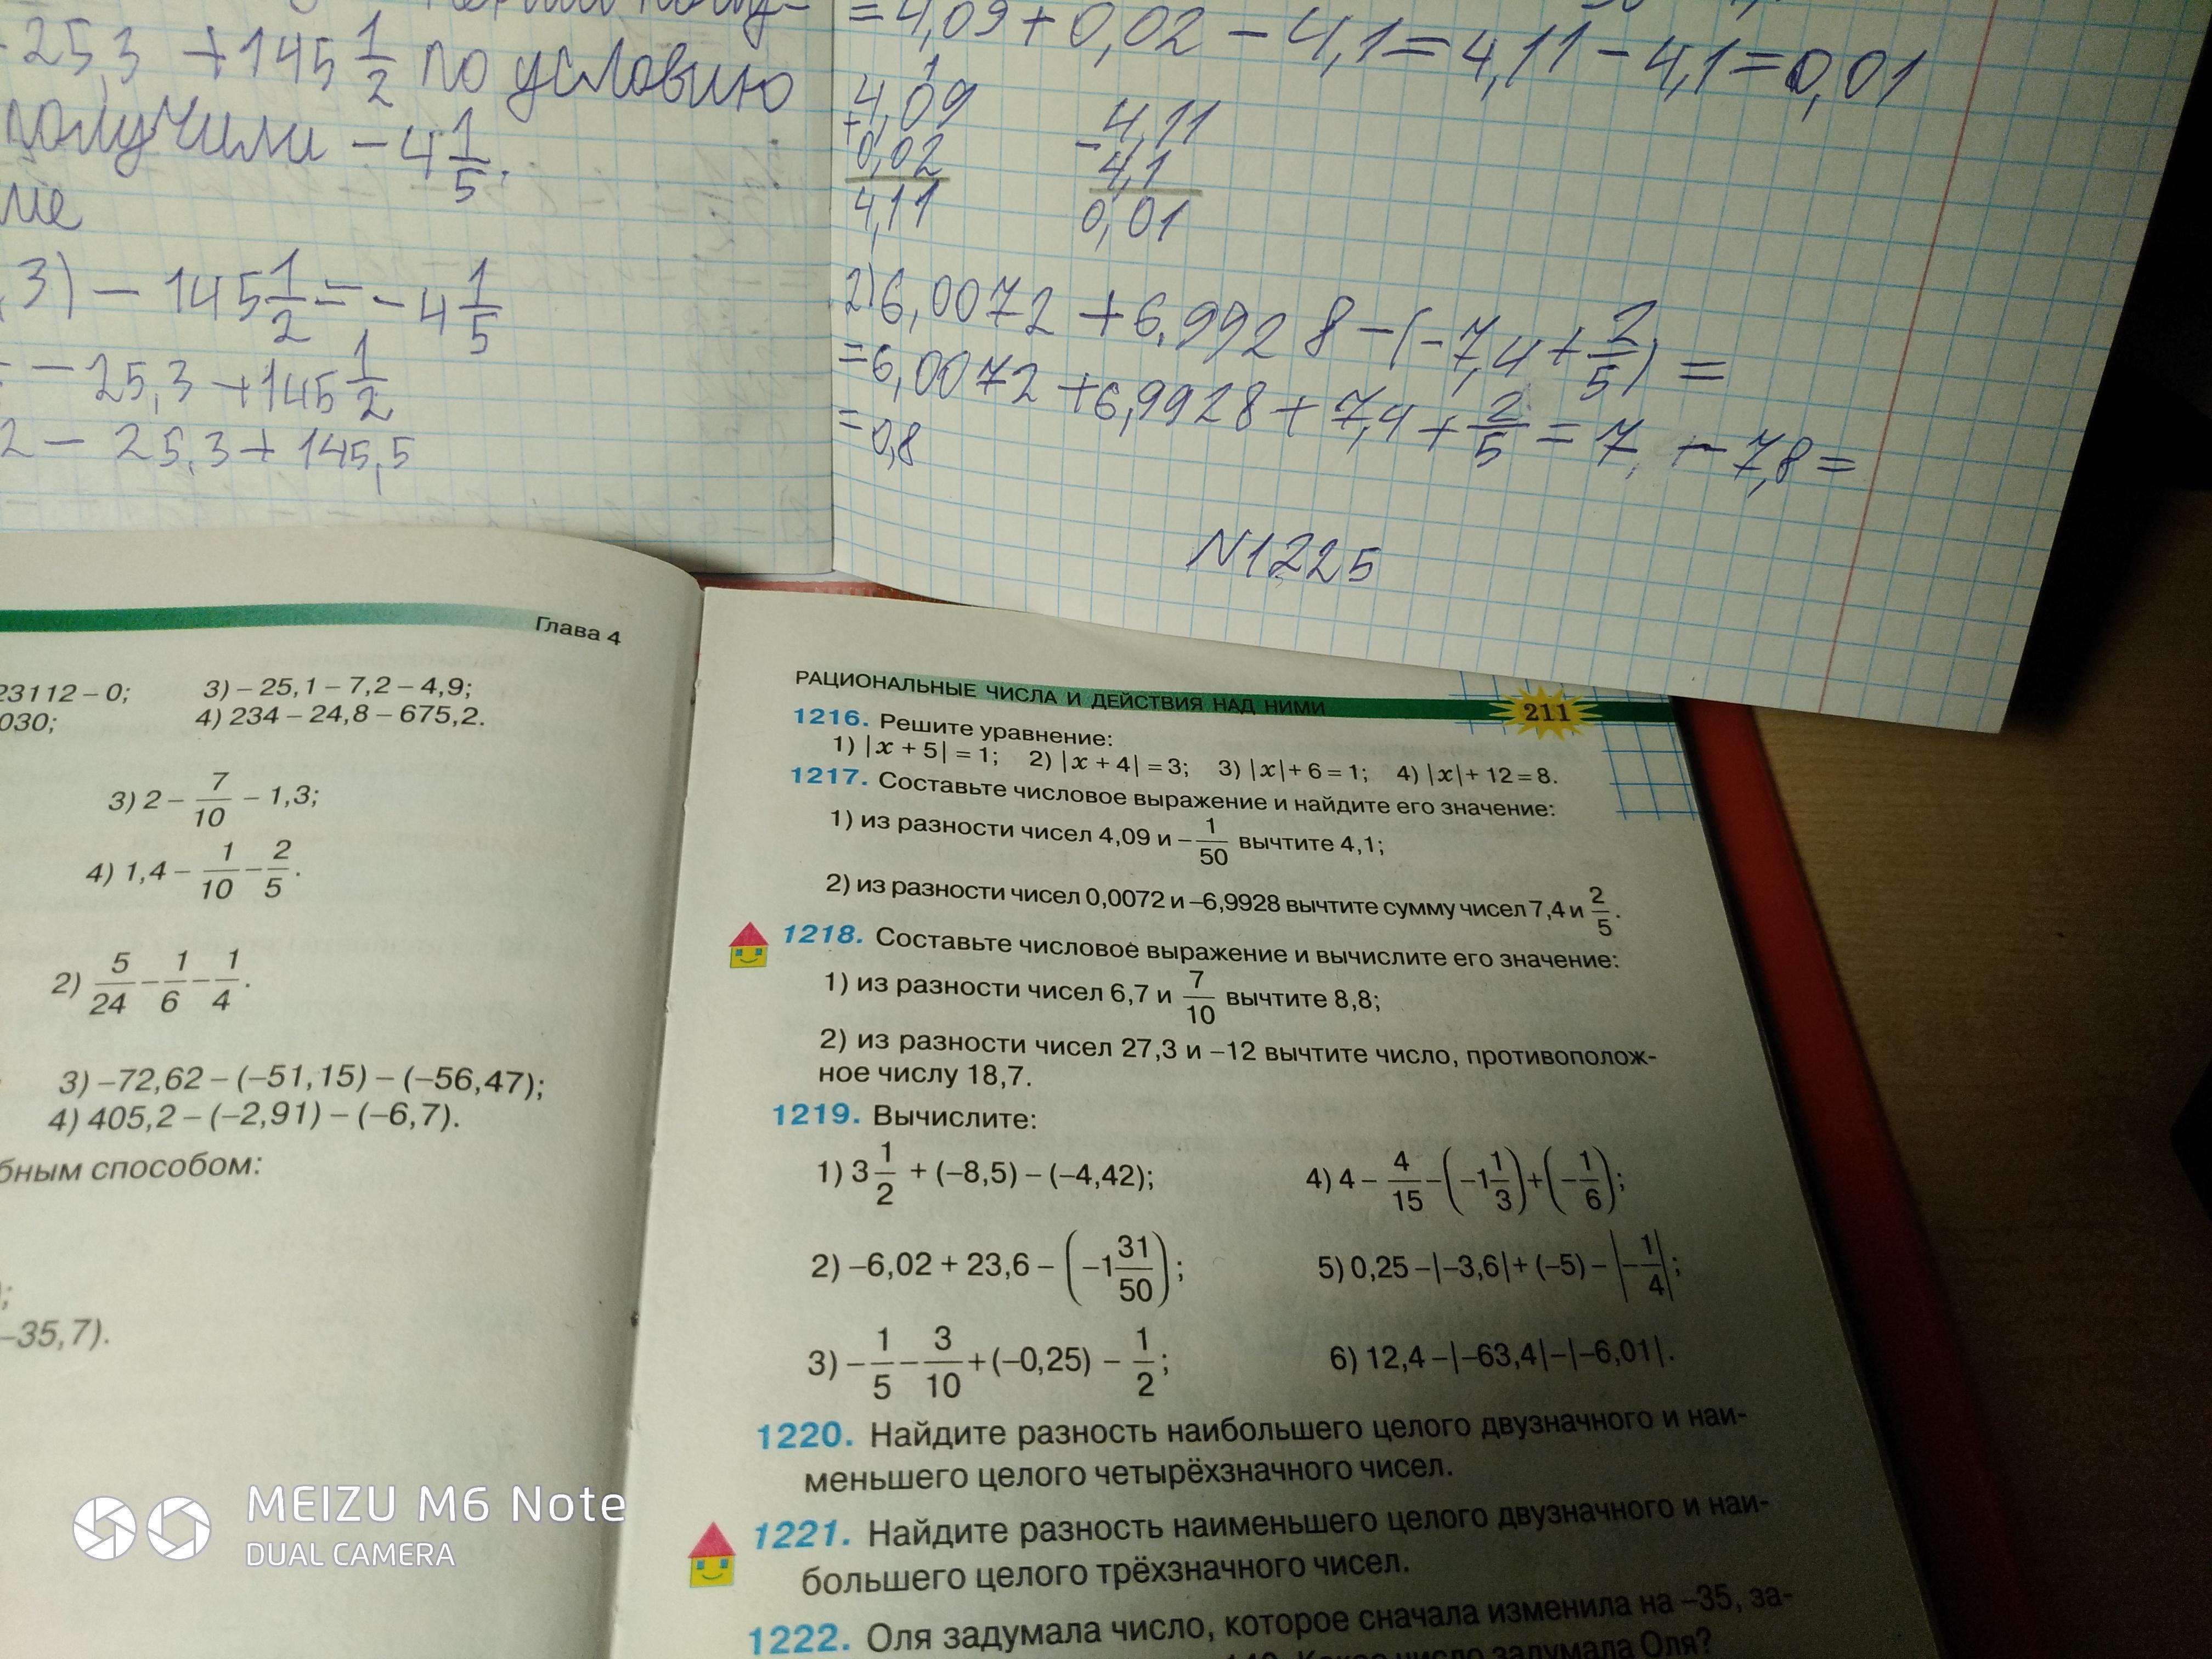 25,3 + 145 1/2 по условию
получили - 4 1/5.
,3) - 145 1/2 = - 4 1/5
= - 25,3 + 145 1/2
2 - 25,3 + 145,5
= 4,09 + 0,02 - 4,1 = 4,11 - 4,1 = 0,01
1
4,09
+
0,02
4,11
- 4,11
4,1
0,01
2) 6,0072 + 6,9928 - (-7,4 + 2/5) =
= 6,0072 + 6,9928 + 7,4 + 2/5 = 7, + - 7,8 =
= 0,8
N1225
Глава 4
23112 – 0;
030;
3) – 25,1 – 7,2 – 4,9;
4) 234 – 24,8 – 675,2.
3) 2 – 7/10 – 1,3;
4) 1,4 – 1/10 – 2/5.
2) 5/24 – 1/6 – 1/4.
3) –72,62 – (–51,15) – (–56,47);
4) 405,2 – (–2,91) – (–6,7).
бным способом:
;
–35,7).
РАЦИОНАЛЬНЫЕ ЧИСЛА И ДЕЙСТВИЯ НАД НИМИ 211
1216. Решите уравнение:
1) |x + 5| = 1; 2) |x + 4| = 3; 3) |x| + 6 = 1; 4) |x| + 12 = 8.
1217. Составьте числовое выражение и найдите его значение:
1) из разности чисел 4,09 и – 1/50 вычтите 4,1;
2) из разности чисел 0,0072 и –6,9928 вычтите сумму чисел 7,4 и 2/5.
1218. Составьте числовое выражение и вычислите его значение:
1) из разности чисел 6,7 и 7/10 вычтите 8,8;
2) из разности чисел 27,3 и –12 вычтите число, противополож-
ное числу 18,7.
1219. Вычислите:
1) 3 1/2 + (–8,5) – (–4,42);
4) 4 – 4/15 – (–1 1/3) + (– 1/6);
2) –6,02 + 23,6 – (–1 31/50);
5) 0,25 – |–3,6| + (–5) – |– 1/4|;
3) – 1/5 – 3/10 + (–0,25) – 1/2;
6) 12,4 – |–63,4| – |–6,01|.
1220. Найдите разность наибольшего целого двузначного и наи-
меньшего целого четырёхзначного чисел.
1221. Найдите разность наименьшего целого двузначного и наи-
большего целого трёхзначного чисел.
1222. Оля задумала число, которое сначала изменила на –35, за-
число задумала Оля?
MEIZU M6 Note
DUAL CAMERA